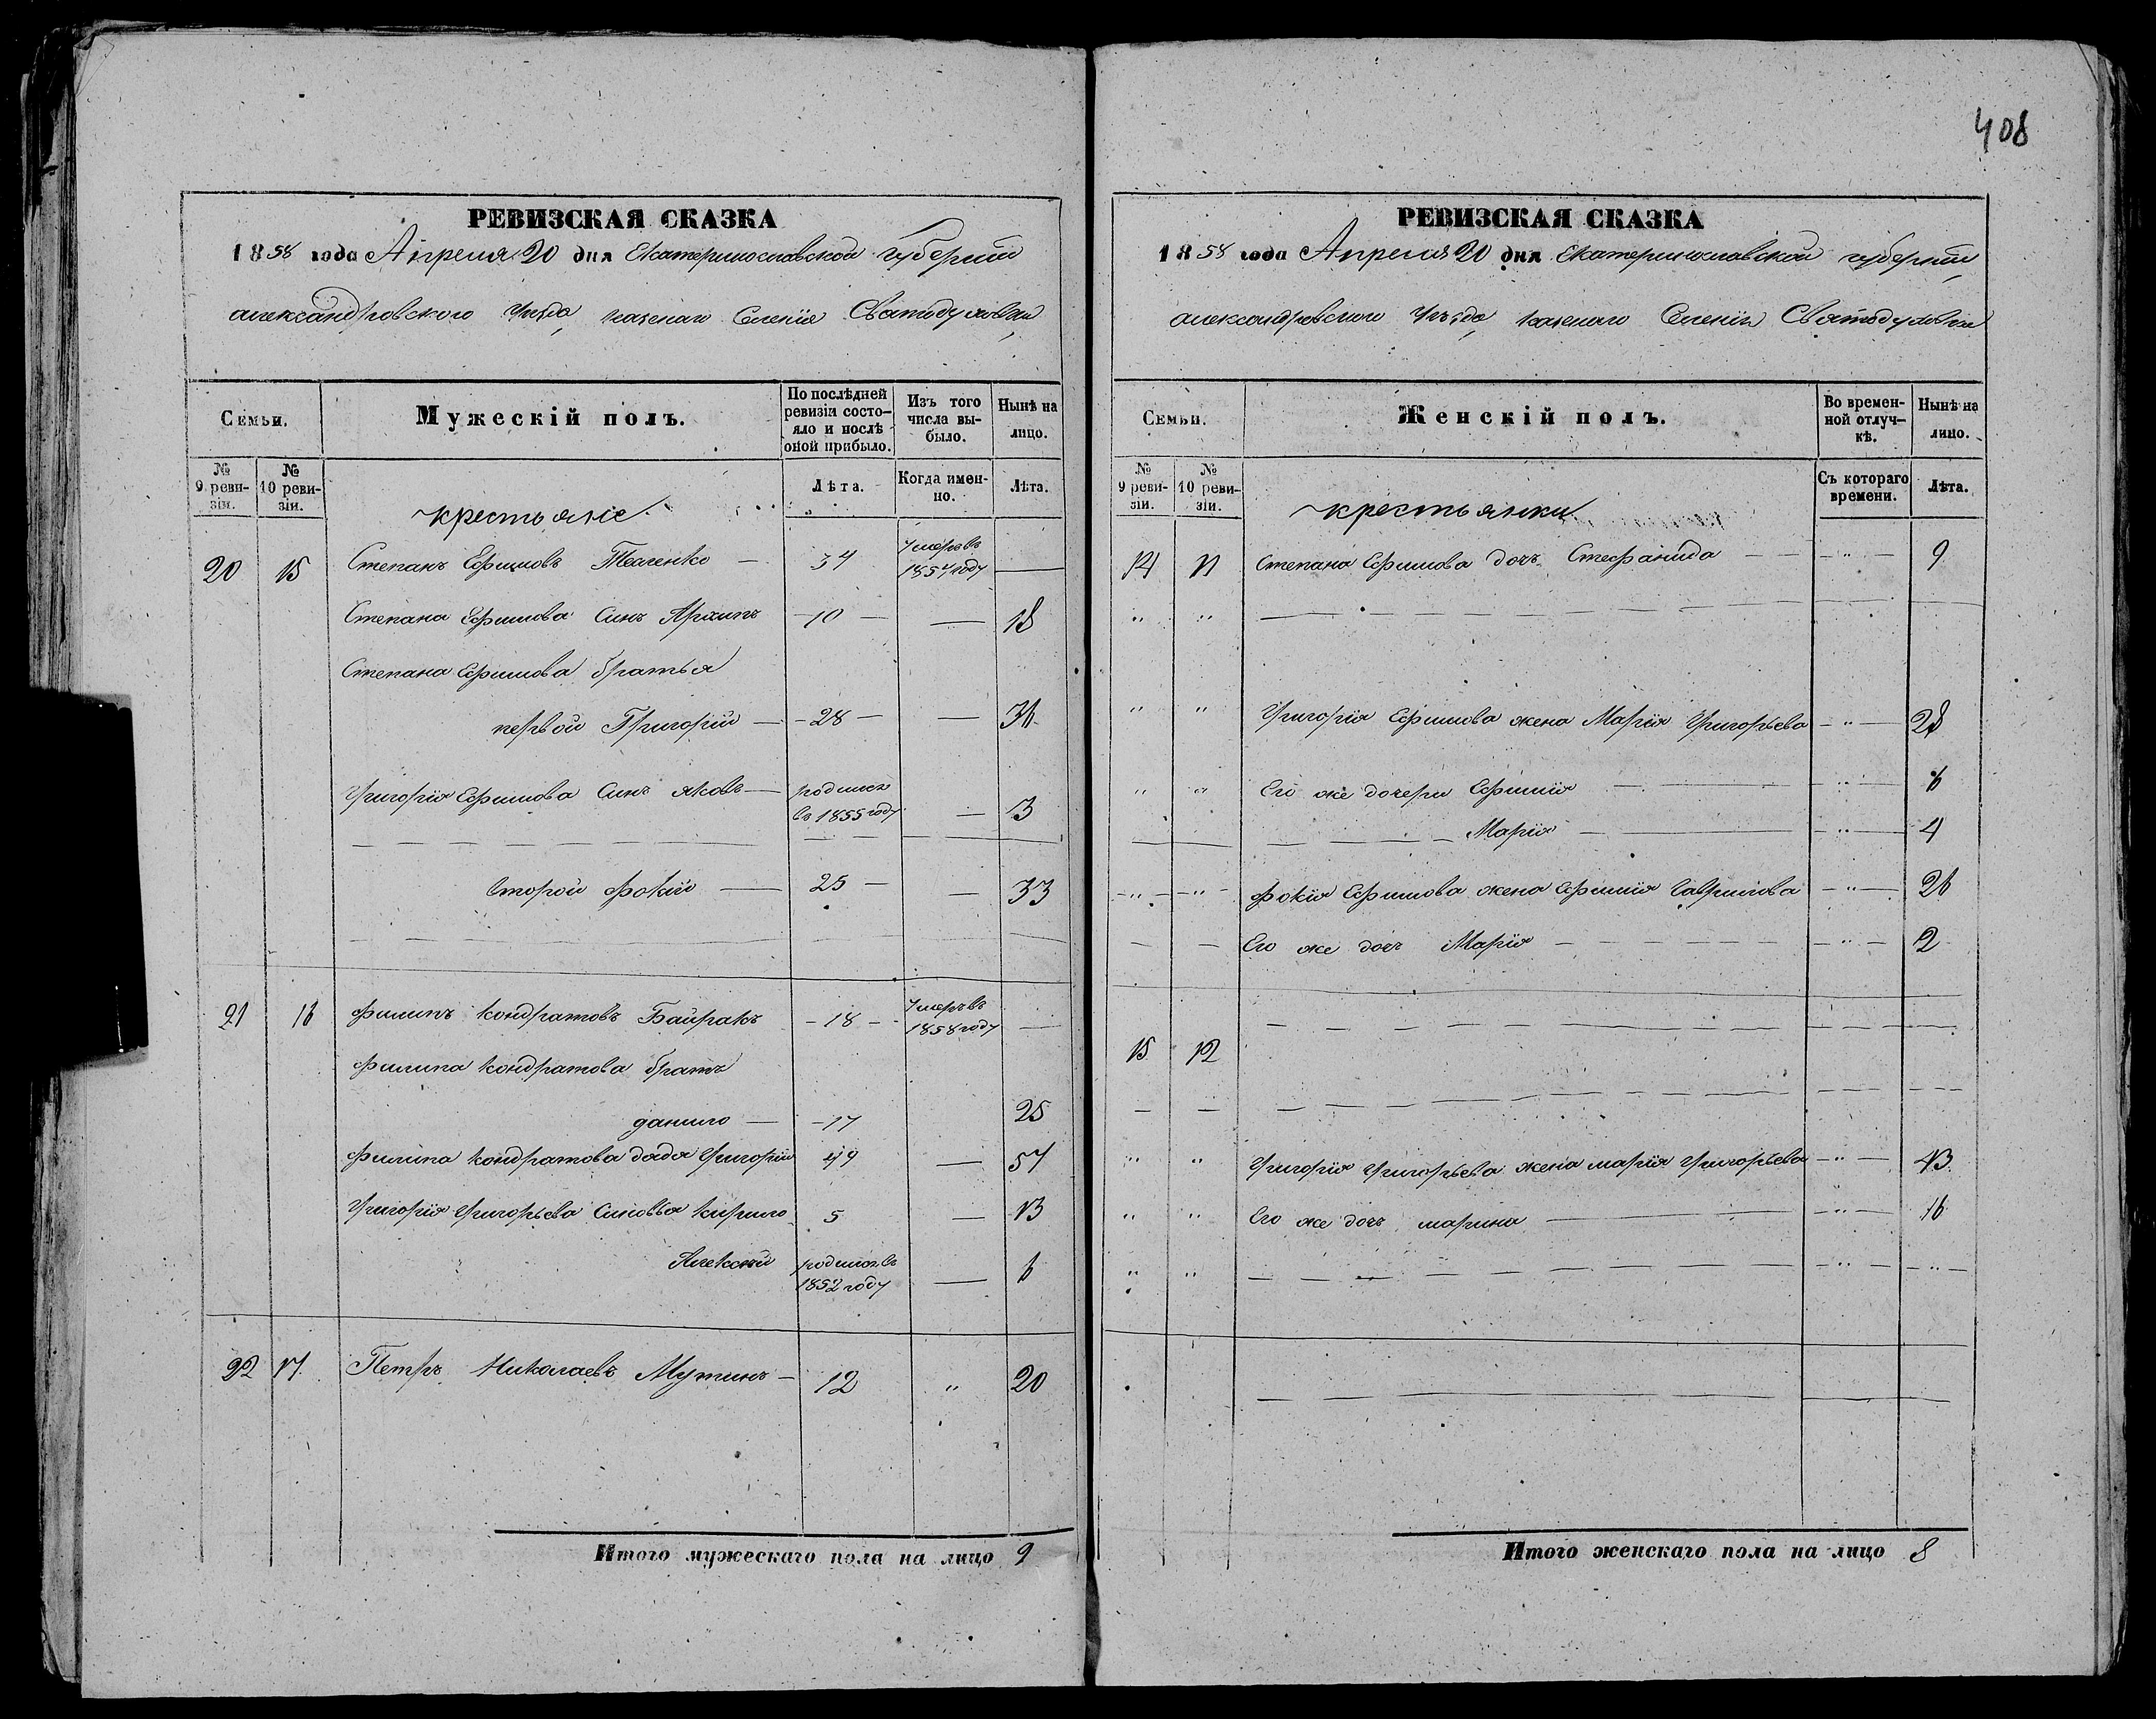 408
РЕВИЗСКАЯ СКАЗКА
1858 года Апреля 20 дня Екатеринославской губернии
александровского уезда, казенаго Селения Святодуховки
Семьи.
Мужескій полъ.
По послѣдней ревизіи состояло и послѣ оной прибыло.
Изъ того числа выбыло.
Нынѣ на лицо.
№ 9 ревизіи.
№ 10 ревизіи.
крестьяне
Лѣта.
Когда именно.
Лѣта.
20 15 Степанъ Ефимовъ Ткаченко — 34 умеръ въ 1854 году —
Степана Ефимова Синъ Архипъ — 10 — — 18
Степана Ефимова братья
первой Григорій — 28 — — 36
Григорія Ефимова Синъ яковъ — родился въ 1855 году — 3
второй Фокій — 25 — — 33
21 16 Филипъ Кондратовъ Байракъ — 18 — умеръ въ 1858 году —
Филипа Кондратова братъ
данило — 17 25
Филипа Кондратова дядя Григорій 49 — 57
Григорія Григорьева Синовья Кирило 5 — 13
Алексей родился въ 1852 году — 6
22 17 Петръ Николаевъ Мутинъ — 12 " 20
Итого мужескаго пола на лицо 9
РЕВИЗСКАЯ СКАЗКА
1858 года Апреля 20 дня Екатеринославской губернии,
александровского уѣзда, казенаго Селенія Святодуховки
Семьи.
Женскій полъ.
Во временной отлучкѣ.
Нынѣ на лицо.
№ 9 ревизіи.
№ 10 ревизіи.
крестьянки
Съ котораго времени.
Лѣта.
14 11 Степана Ефимова дочь Стефанида — " — 9
" " —
" " Григорія Ефимова жена Марія Григорьева — " — 28
" " Его же дочери Ефимія — " — 6
Марія — " — 4
" " Фокія Ефимова жена Ефимія Гаврилова — " — 26
Его же дочь Марія — " — 2
15 12
" " Григорія Григорьева жена марія Григорьева — " — 43
" " Его же дочь марина — " — 16
" " — " — "
Итого женскаго пола на лицо 8